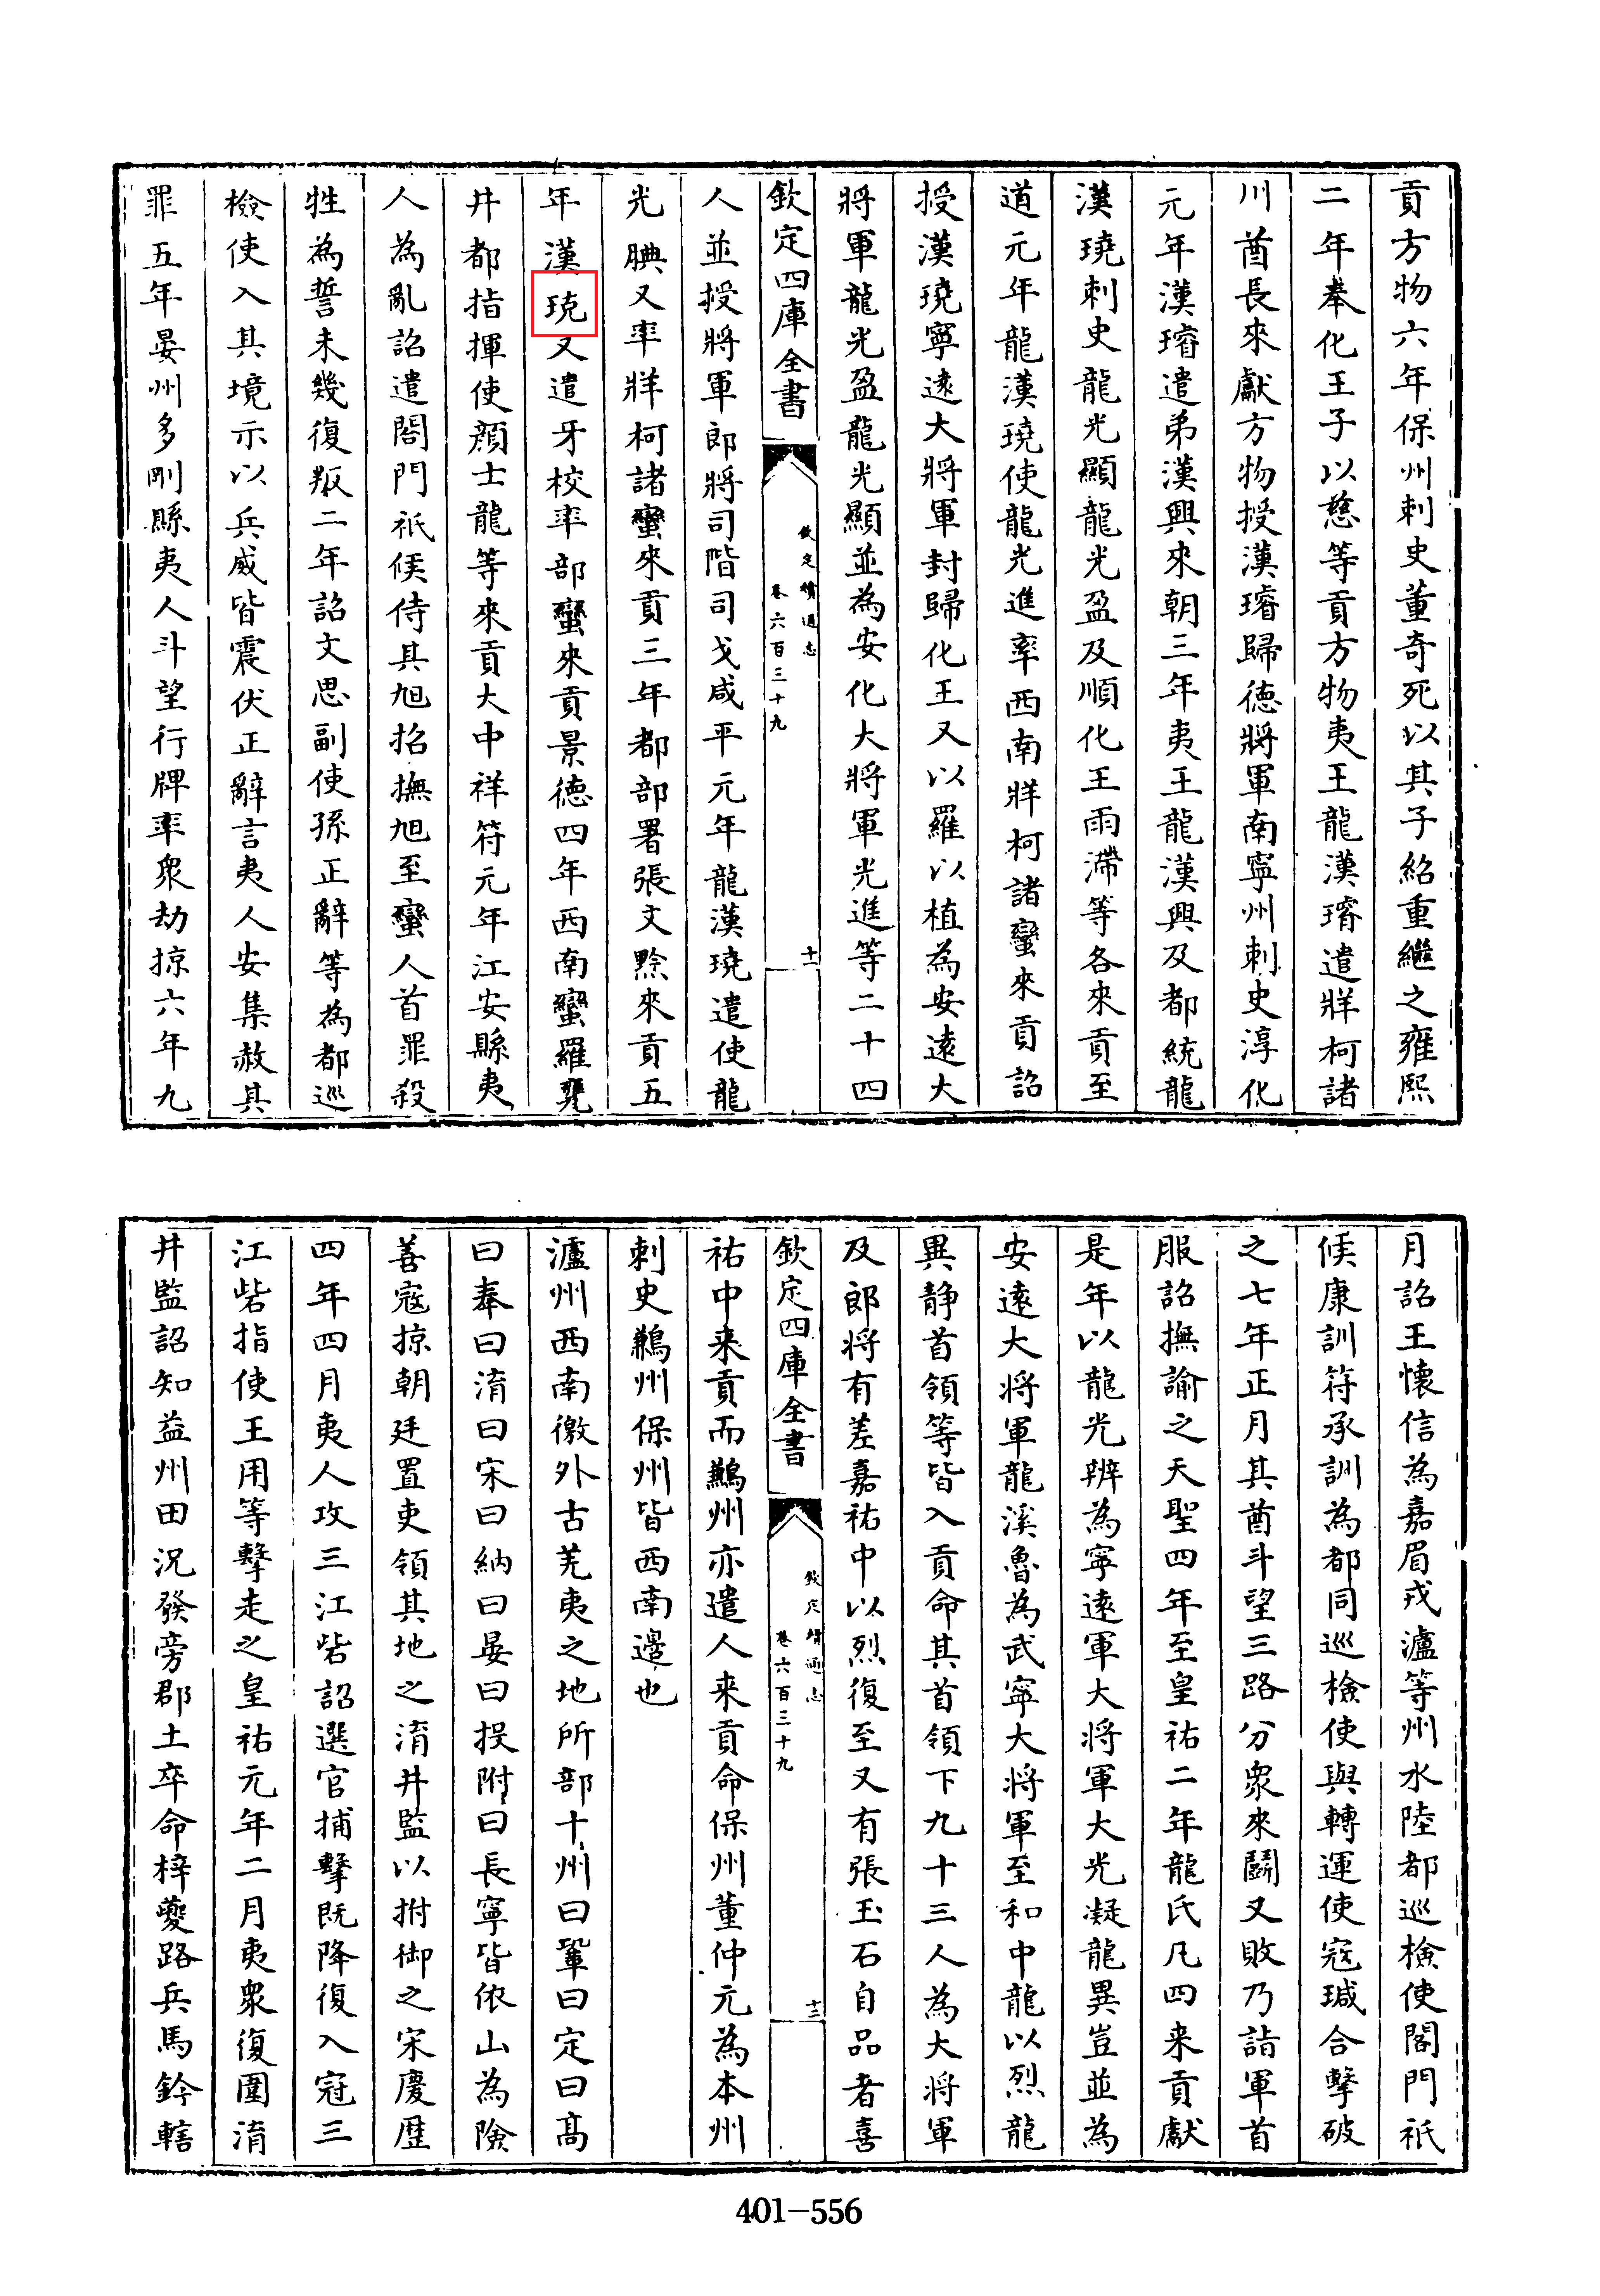 貢方物六年保州刺史董奇死以其子紹重繼之雍熙
二年奉化王子以慈等貢方物夷王龍漢璿遣牂柯諸
川酋長來獻方物授漢璿歸德將軍南寧州刺史淳化
元年漢璿遣弟漢興來朝三年夷王龍漢興及都統龍
漢𤩊刺史龍光顯龍光盈及順化王雨滯等各來貢至
道元年龍漢𤩊使龍光進率西南牂柯諸蠻來貢詔
授漢𤩊寧遠大將軍封歸化王又以羅以植為安遠大
將軍龍光盈龍光顯並為安化大將軍光進等二十四
欽定四庫全書 欽定續通志 卷六百三十九 十一
人並授將軍郎將司階司戈咸平元年龍漢𤩊遣使龍
光腆又率牂柯諸蠻來貢三年都部署張文黔來貢五
年漢𤩊又遣牙校率部蠻來貢景德四年西南蠻羅甕
井都指揮使顔士龍等來貢大中祥符元年江安縣夷
人為亂詔遣閤門祇候侍其旭招撫旭至蠻人首罪殺
牲為誓未幾復叛二年詔文思副使孫正辭等為都巡
檢使入其境示以兵威皆震伏正辭言夷人安集赦其
罪五年晏州多剛縣夷人斗望行牌率衆劫掠六年九
月詔王懷信為嘉眉戎瀘等州水陸都巡檢使閤門祇
候康訓符承訓為都同巡檢使與轉運使寇瑊合擊破
之七年正月其酋斗望三路分衆來鬭又敗乃詣軍首
服詔撫諭之天聖四年至皇祐二年龍氏凡四来貢獻
是年以龍光辨為寧遠軍大將軍大光凝龍異豈並為
安遠大將軍龍溪魯為武寧大將軍至和中龍以烈龍
異静首領等皆入貢命其首領下九十三人為大將軍
及郎將有差嘉祐中以烈復至又有張玉石自品者喜
欽定四庫全書 欽定續通志 卷六百三十九 十二
祐中来貢而鶼州亦遣人来貢命保州董仲元為本州
刺史鶼州保州皆西南邊也
瀘州西南徼外古羌夷之地所部十州曰鞏曰定曰高
曰奉曰淯曰宋曰納曰晏曰投附曰長寧皆依山為險
善寇掠朝廷置吏領其地之淯井監以拊御之宋慶歷
四年四月夷人攻三江砦詔選官捕擊既降復入寇三
江砦指使王用等擊走之皇祐元年二月夷衆復圍淯
井監詔知益州田況發旁郡土卒命梓夔路兵馬鈐轄
401-556